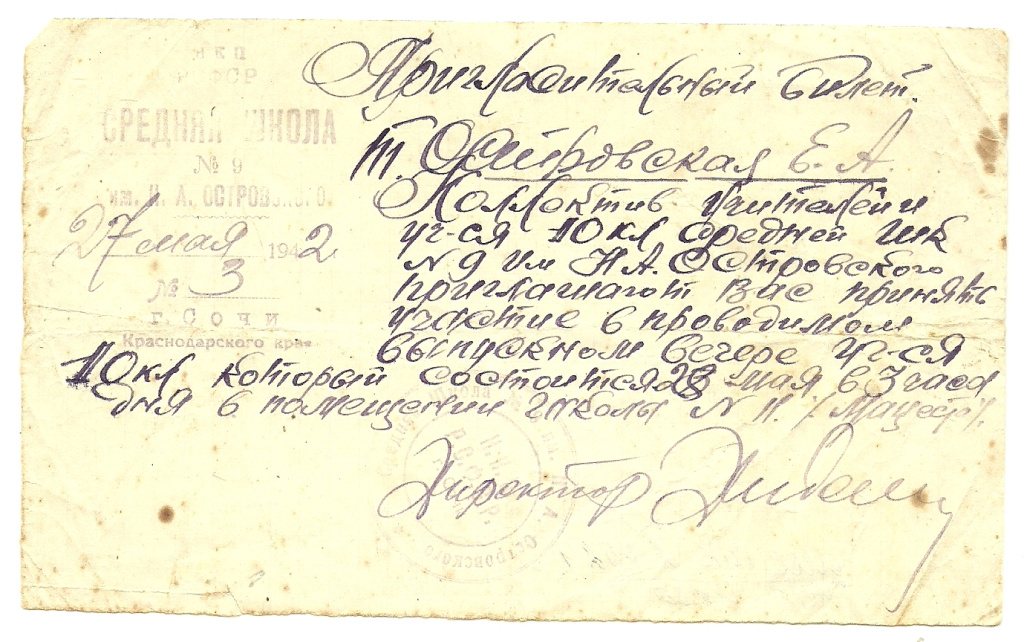 НКП
РСФСР
СРЕДНЯЯ ШКОЛА
№ 9
им. Н. А. ОСТРОВСКОГО
27 мая 1942
№ 3
г. Сочи
Краснодарского края
Пригласительный билет.
т. Островская Е. А
Коллектив учителей и
уч-ся 10 кл средней шк
N 9 им Н А. Островского
приглашают Вас принять
участие в проводимом
выпускном вечере уч-ся
10 кл который состоится 28 мая в 3 часа
дня в помещении школы N 11. /Мацеста/.
Директор
Островского